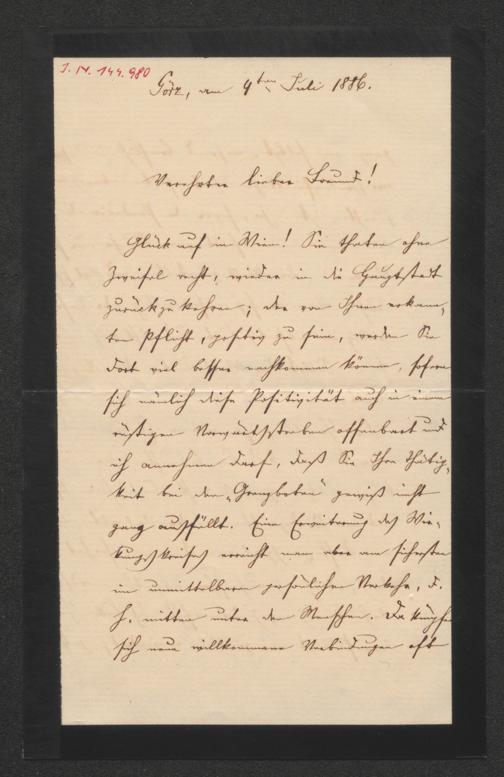 J. N. 144.980
Görz, am 9ten Juli 1886.
Verehrter lieber Freund!
Glück auf in Wien! Sie thaten ohne
Zweifel recht, wieder in die Hauptstadt
zurückzukehren; der von Ihnen erkann-
ten Pflicht, positiv zu sein, werden Sie
dort viel besser nachkommen können, sofern
sich nämlich diese Positivität auch in einem
rüstigen Vorwärtsstreben offenbart und
ich annehmen darf, daß Sie Ihre Thätig-
keit bei den „Grenzboten" gewiß nicht
ganz ausfüllt. Eine Erweiterung des Wir-
kungskreises erreicht man aber am sichersten
im unmittelbaren persönlichen Verkehr, d.
h. mitten unter den Menschen. Da knüpfen
sich neue willkommene Verbindungen oft